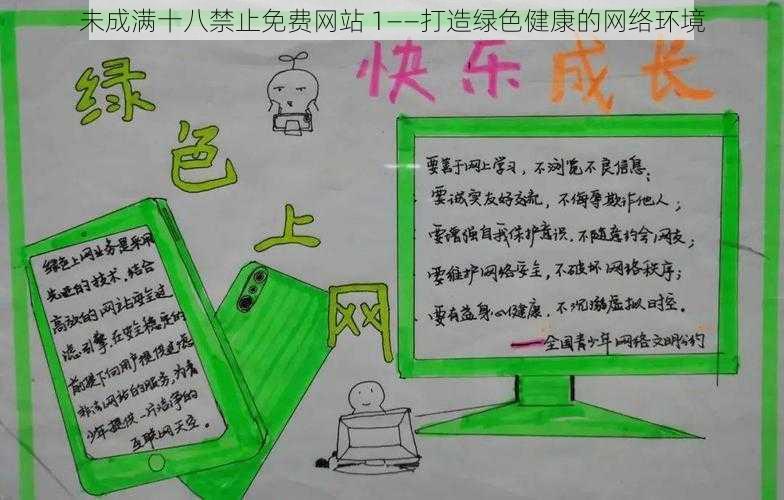 未成满十八禁止免费网站 1——打造绿色健康的网络环境
绿色上网
快乐成长
绿色上网业务是采用
先进的技术,结合
高效的网站安全过
滤引擎在安全稳定的
前提下向用户提供过滤
非法网站的服务,为青
少年提供一片洁净的
互联网天空。
要善于网上学习,不浏览不良信息;
要诚实友好交流,不侮辱欺诈他人;
要增强自我保护意识,不随意约会网友;
要维护网络安全,不破坏网络秩序;
要有益身心健康,不沉溺虚拟时空。
——全国青少年网络文明公约